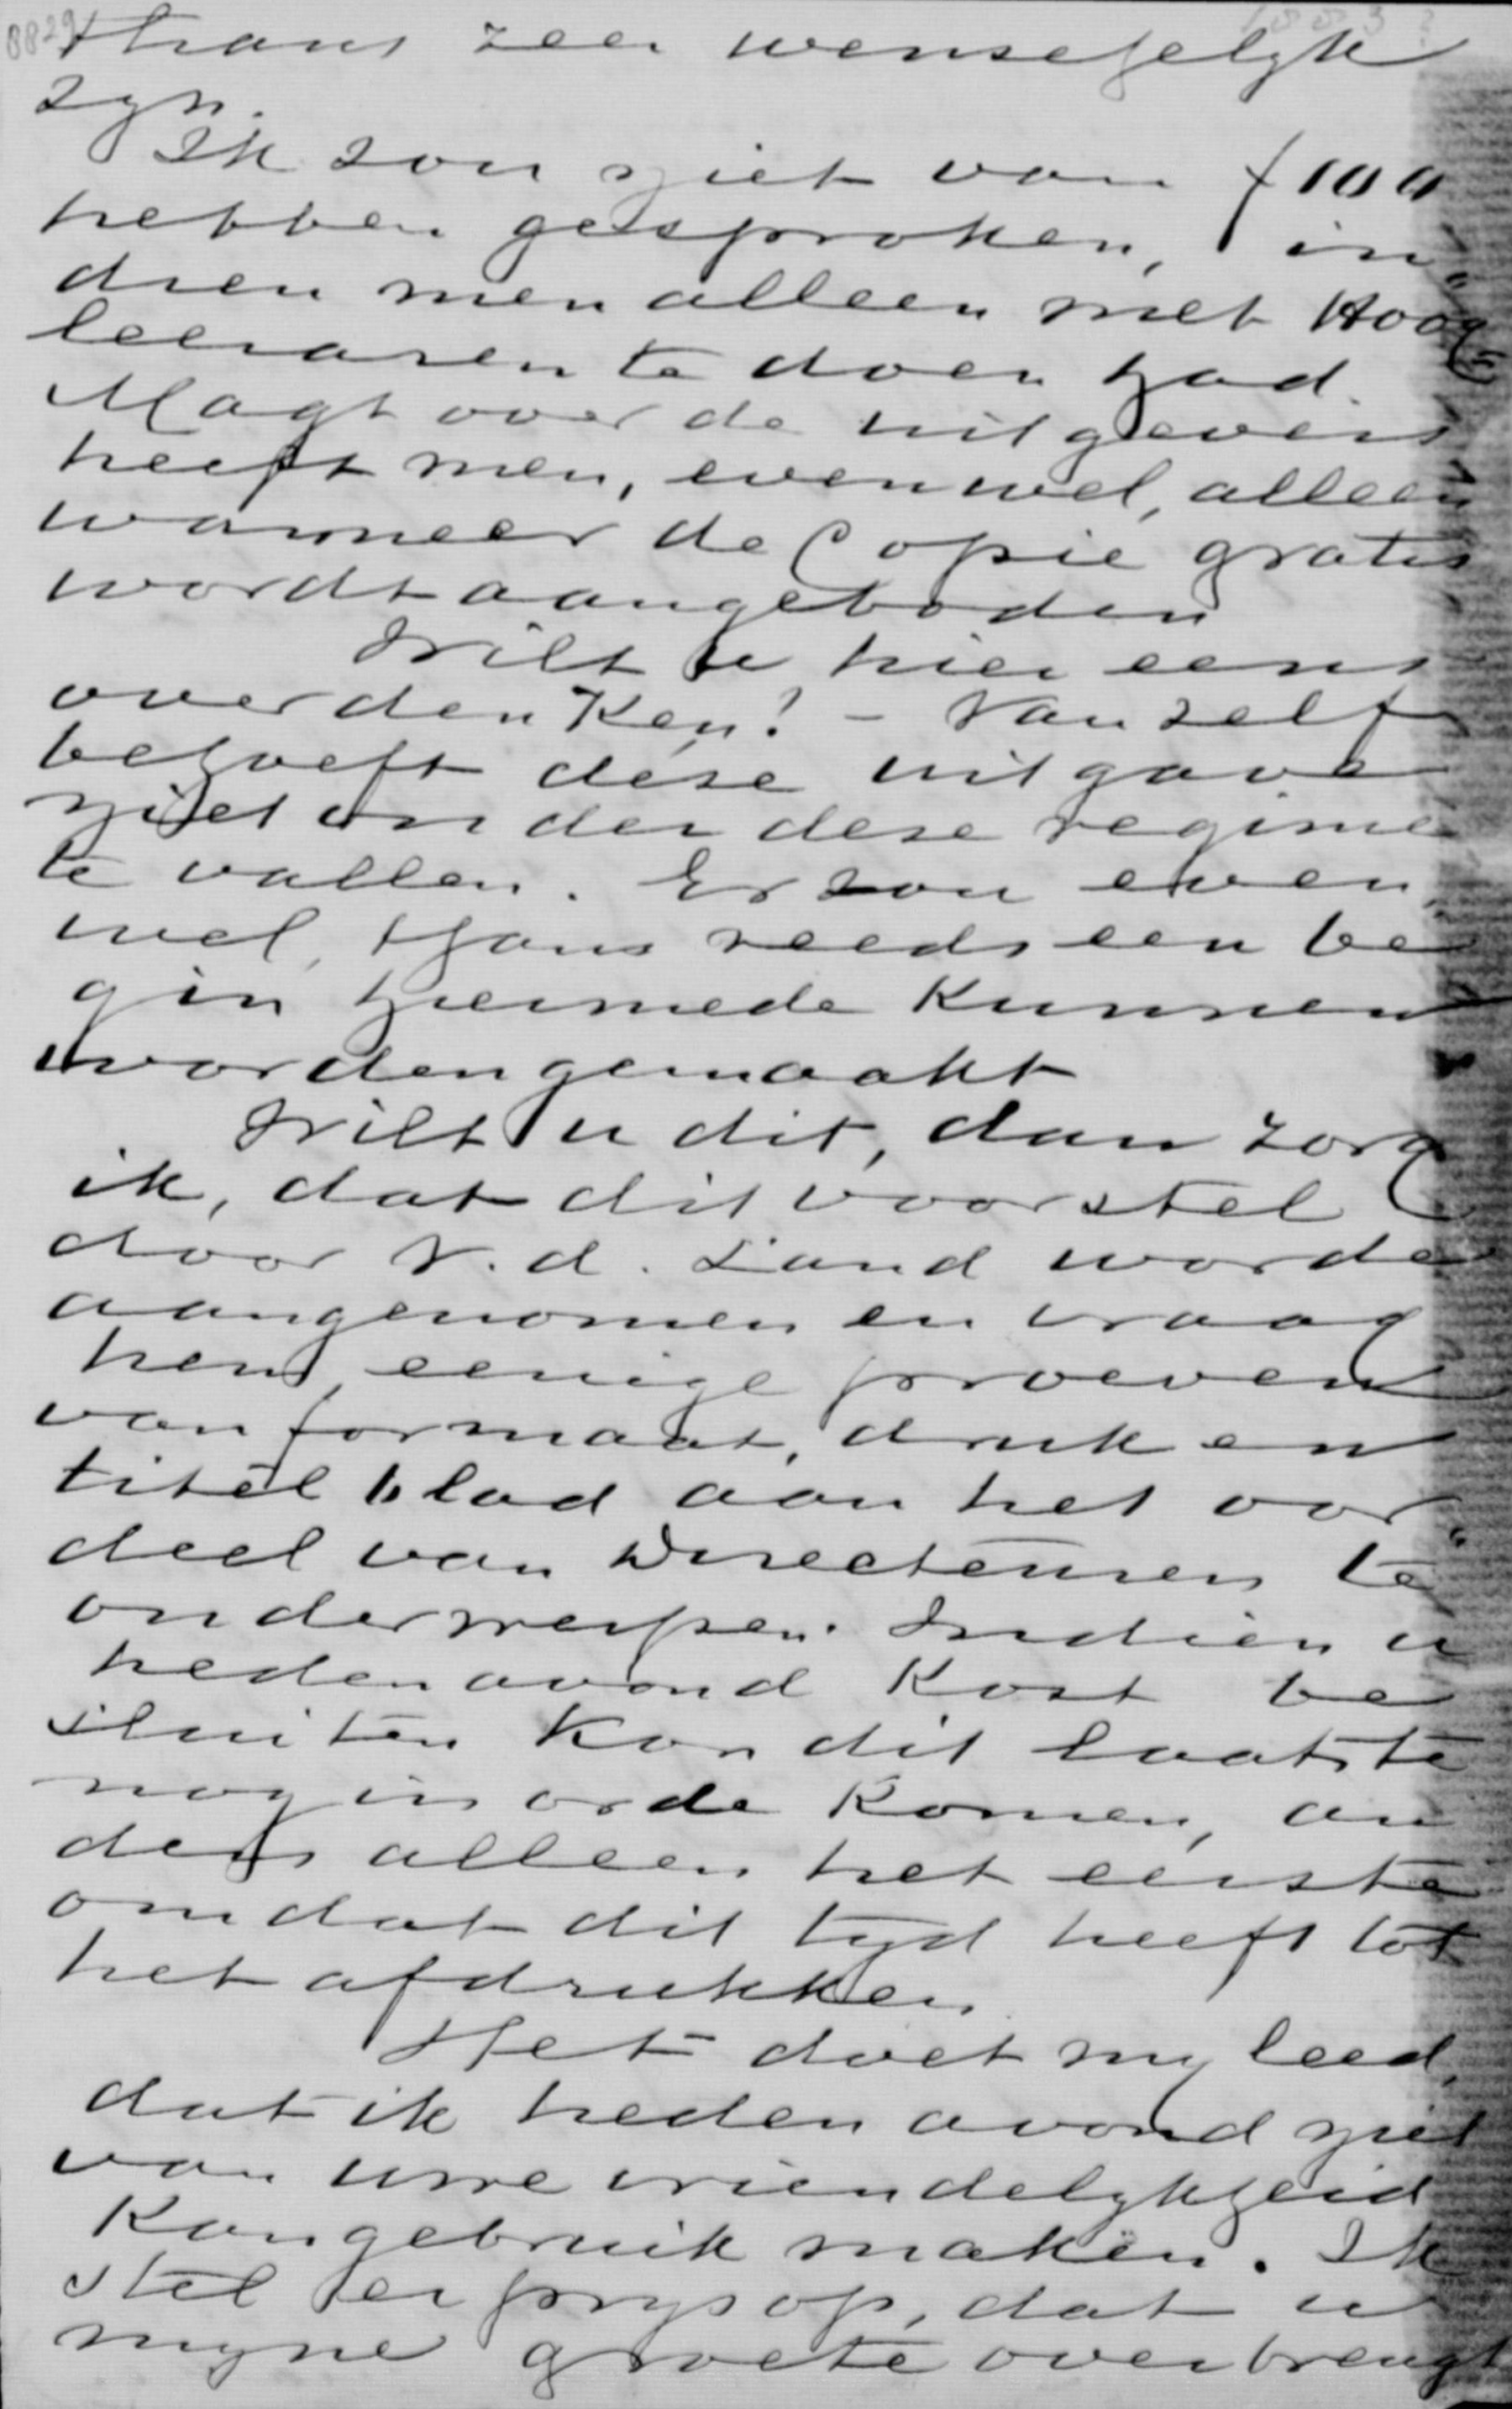 8829
1883?
thans zeer wenschelyk
zyn.
Ik zou niet van f 100
hebben gesproken, in„
dien men alleen met Hoog=
leeraren te doen had.
Magt over de uitgevers
heeft men, evenwel, alleen
wanneer de Copie gratis
wordt aangeboden
Wilt u hier eens
over denken! – Van zelf
behoeft deze uitgave
niet onder deze regime
te vallen. Er zou even
wel, thans reeds een be
gin hiermede kunnen
worden gemaakt
Wilt u dit, dan zorg
ik, dat dit voorstel
door v. d. Land worde
aangenomen en vraag
hem eenige proeven
van formaat, druk en
titel blad aan het oor„
deel van Directeuren te
onderwerpen. Indien u
heden avond kost be
sluiten kon dit laatste
nog in orde komen, an
ders alleen het eerste
omdat dit tyd heeft tot
het afdrukken.
Het doet my leed,
dat ik heden avond niet
van uwe vriendelykheid
kan gebruik maken. Ik
stel er prys op, dat u
myne groete overbrengt